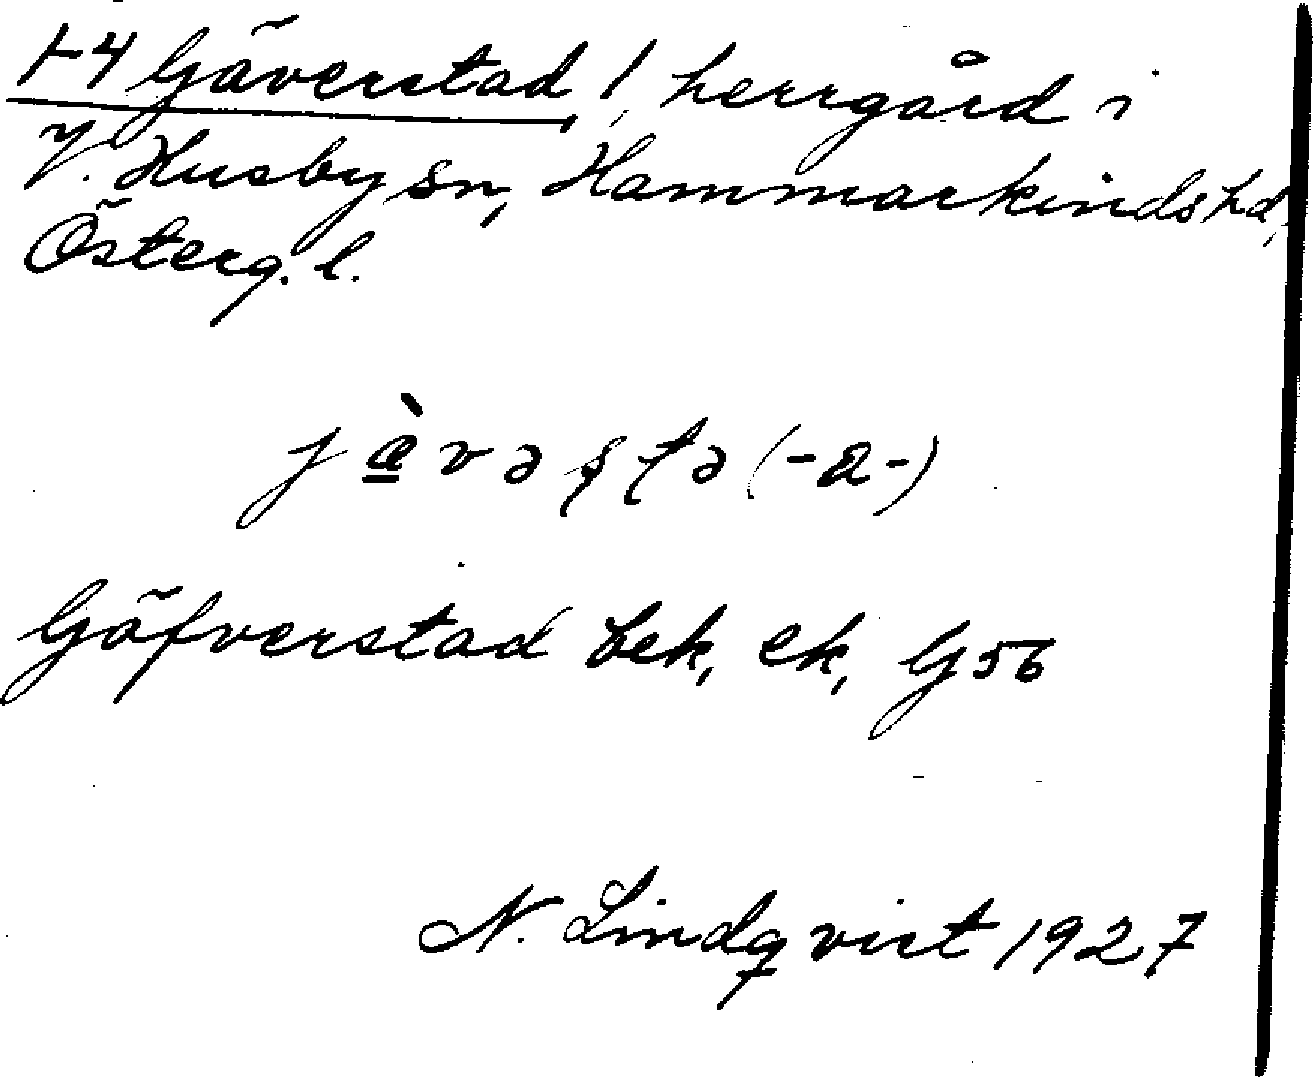 1-4 Gäverstad, herrgård i
V. Husby sn, Hammarkinds hd,
Österg. l.
jæ̀vəʂʈə (-a-)
Gäfverstad bek, ek, G56
N. Lindqvist 1927